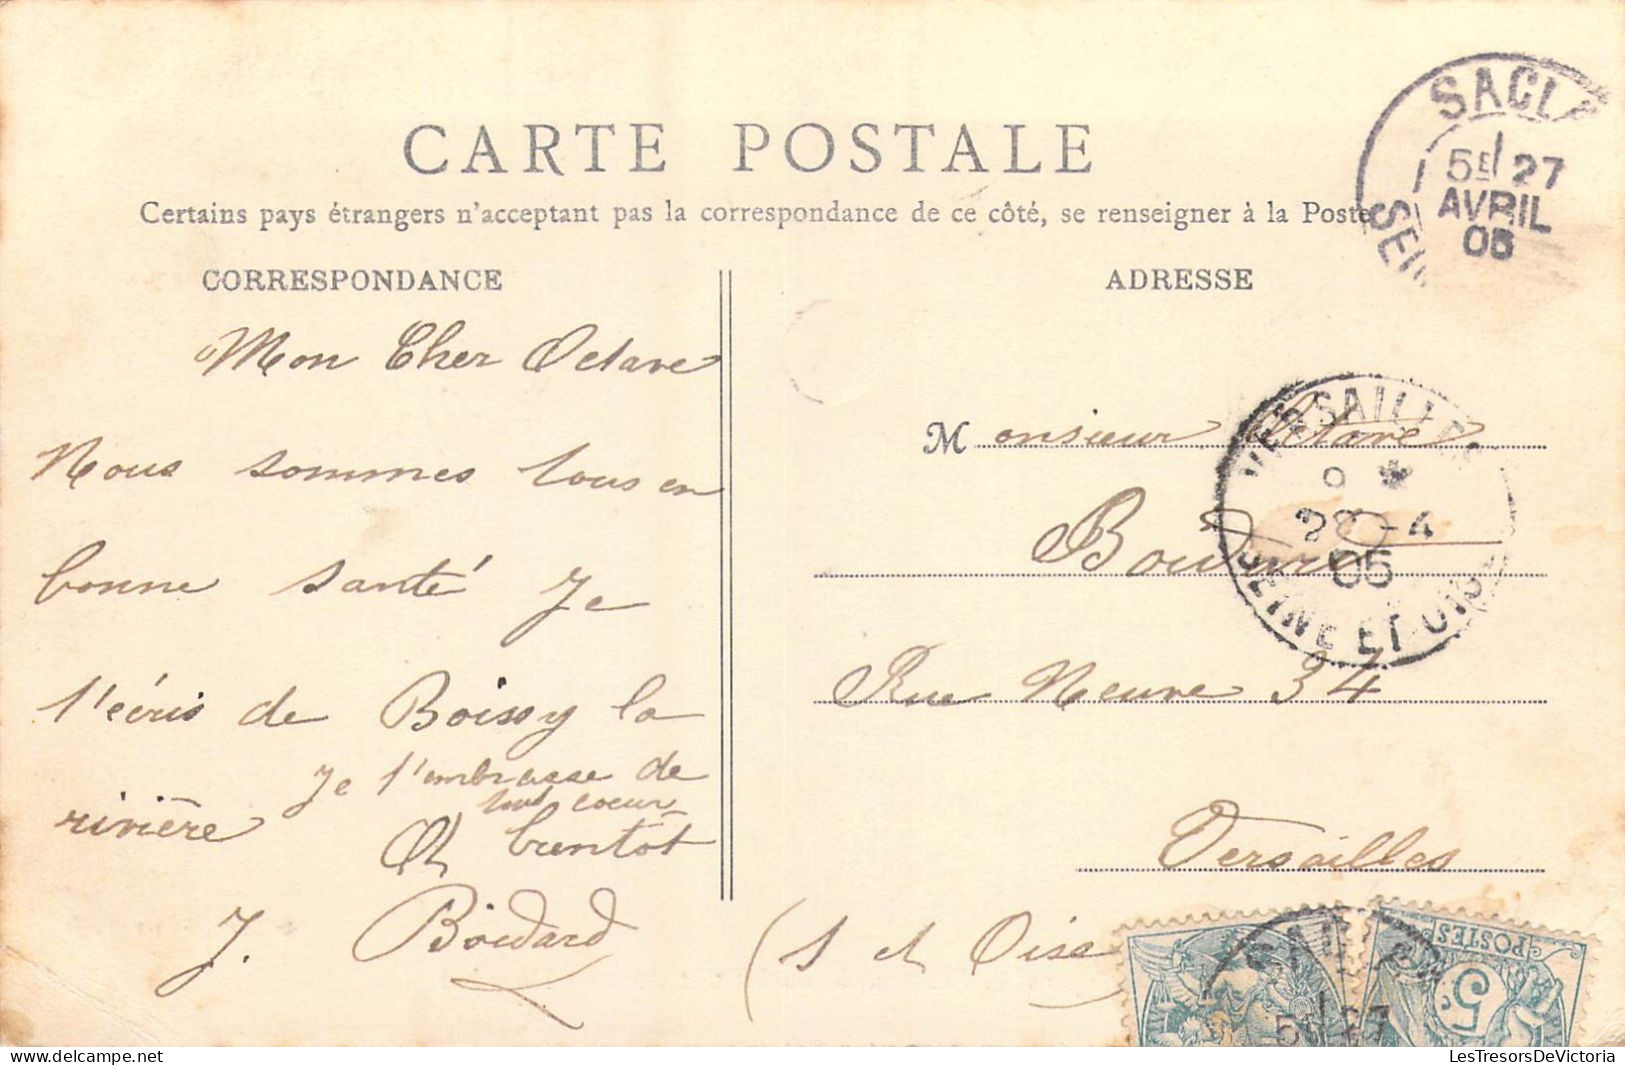 CARTE POSTALE
Certains pays étrangers n'acceptent pas la correspondance de ce côté, se renseigner à la Poste
CORRESPONDANCE
Mon Cher Octave
Nous sommes tous en
bonne santé Je
t'écris de Boissy la
rivière
Je t'embrasse de
tout coeur
bientôt
J. Boudard
ADRESSE
Monsieur Octave
Rue Neuve 34
Versailles
(S et Oise
SACLA
5E 27
AVRIL
05
SEI
VERSAILLES
9 *
28-4
05
SEINE ET OISE
POSTES
5c
LesTresorsDeVictoria